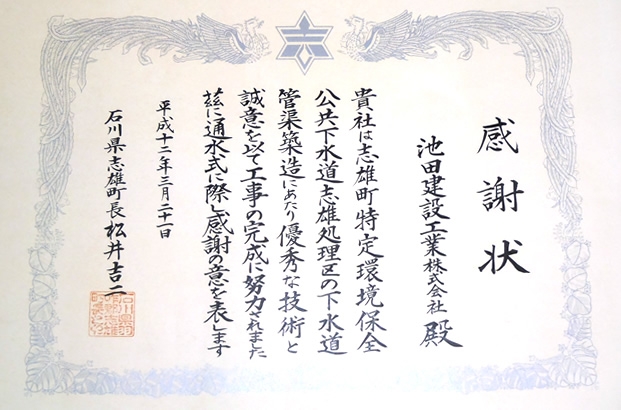 感謝状
池田建設工業株式会社 殿
貴社は志雄町特定環境保全
公共下水道志雄処理区の下水道
管渠築造にあたり優秀な技術と
誠意を以て工事の完成に努力されました
茲に通水式に際し感謝の意を表します
平成十二年三月二十一日
石川県志雄町長 松井吉二